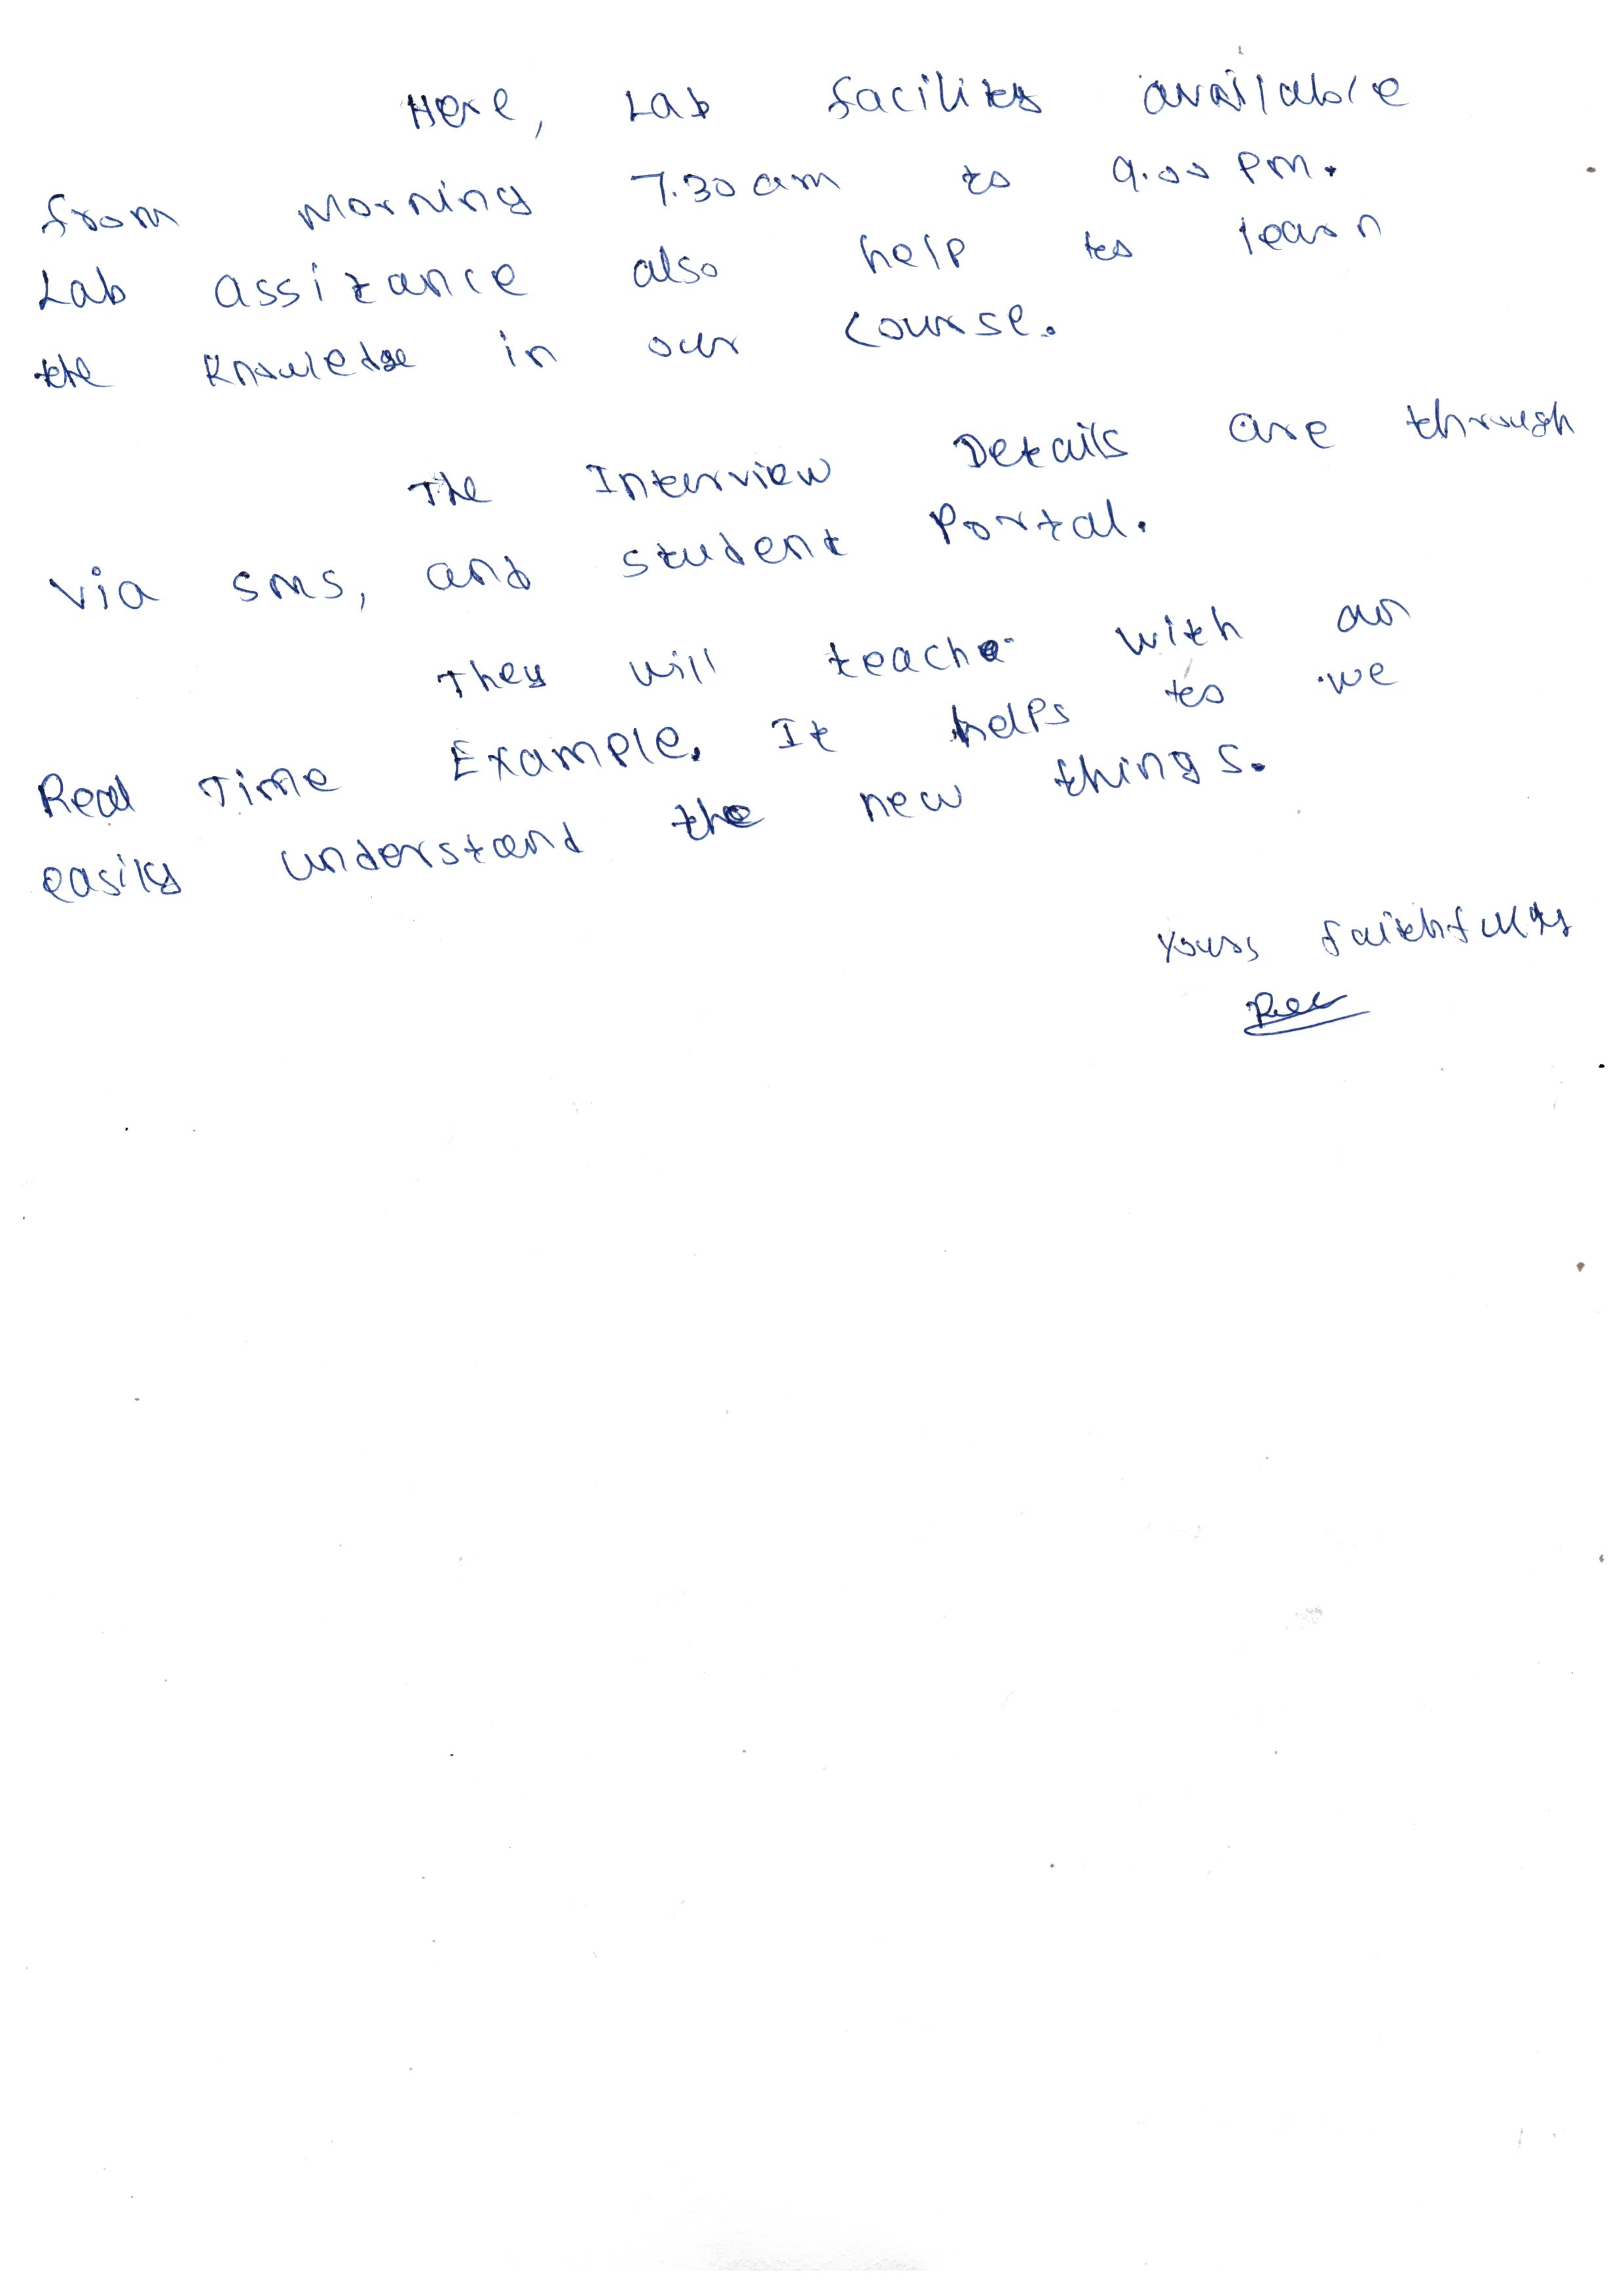 Here, Lab facility available
from Morning 7.30 am to 9.00 PM.
Lab assitance also help to learn
the Knowledge in our course.
The Interview Details are through
via SMS, and student Portal.
They will teach with an
Real Time Example. It helps to we
easily understand the new things.
Yours faithfully